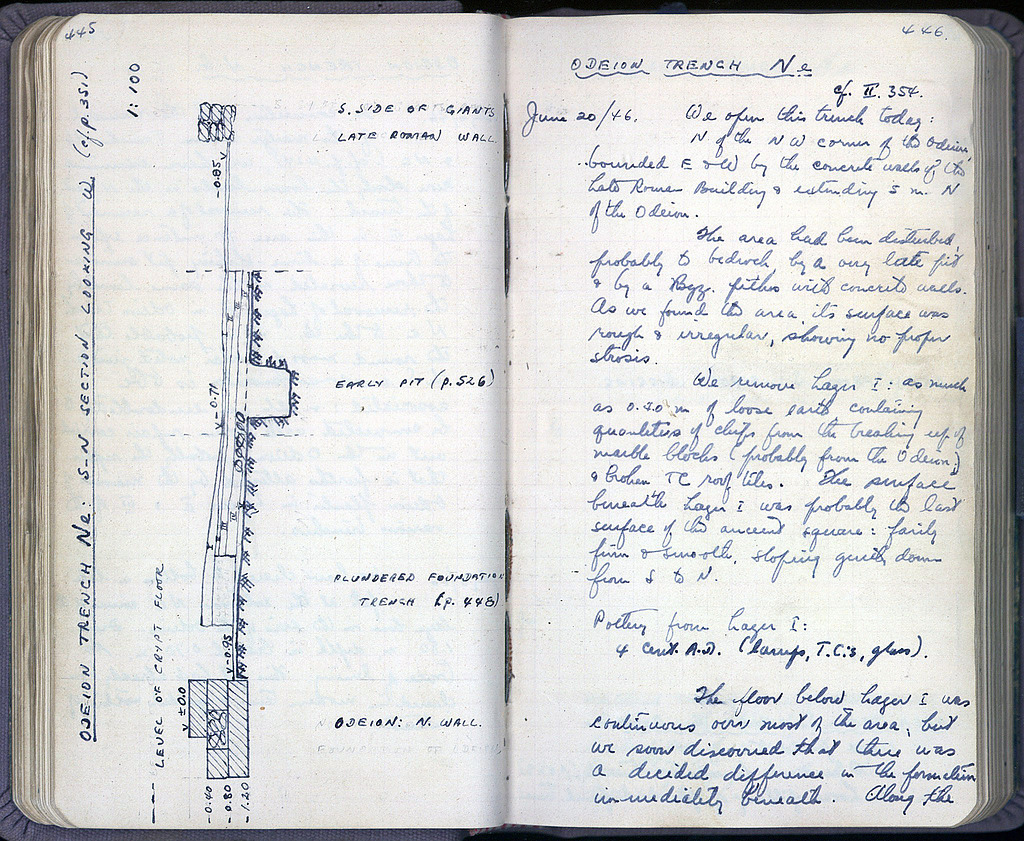 445
ODEION TRENCH Ne: S-N SECTION LOOKING W (cf. p. 351)
1:100
S. SIDE OF GIANTS
LATE ROMAN WALL
v -0.85
EARLY PIT (p. 526)
v -0.71
I
II
III
IV
PLUNDERED FOUNDATION
TRENCH (p. 448)
v -0.95
v ±0.0
ODEION: N. WALL.
--- LEVEL OF CRYPT FLOOR
-0.40
-0.80
-1.20
446.
ODEION TRENCH Ne
cf. II. 354.
June 20/46. We open this trench today:
N of the NW corner of the Odeion,
bounded E & W by the concrete walls of the
Late Roman Building & extending 5 m. N
of the Odeion.
The area had been disturbed,
probably to bedrock by a very late pit
& by a Byz. pithos with concrete walls.
As we found the area, its surface was
rough & irregular, showing no proper
strosis.
We remove Lager I: as much
as 0.30 m of loose earth containing
quantities of chips from the breaking up of
marble blocks (probably from the Odeion)
& broken TC roof tiles. The surface
beneath Lager I was probably the last
surface of the ancient square: fairly
firm & smooth, sloping gently down
from S to N.
Pottery from Lager I:
4 cent. A.D. (lamps, T.C.s, glass).
The floor below Lager I was
continuous over most of the area, but
we soon discovered that there was
a decided difference in the formation
immediately beneath. Along the